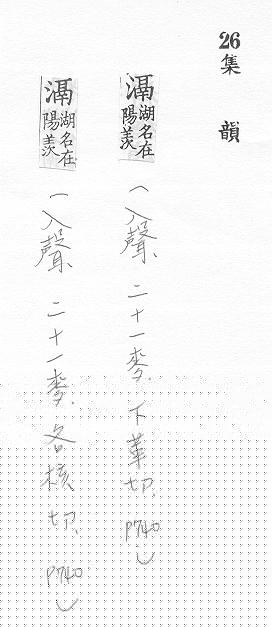 26 集韻
滆湖名在陽羨
(入聲、二十一麥、下革切、P740)
滆湖名在陽羨
(入聲、二十一麥、各核切、P740)